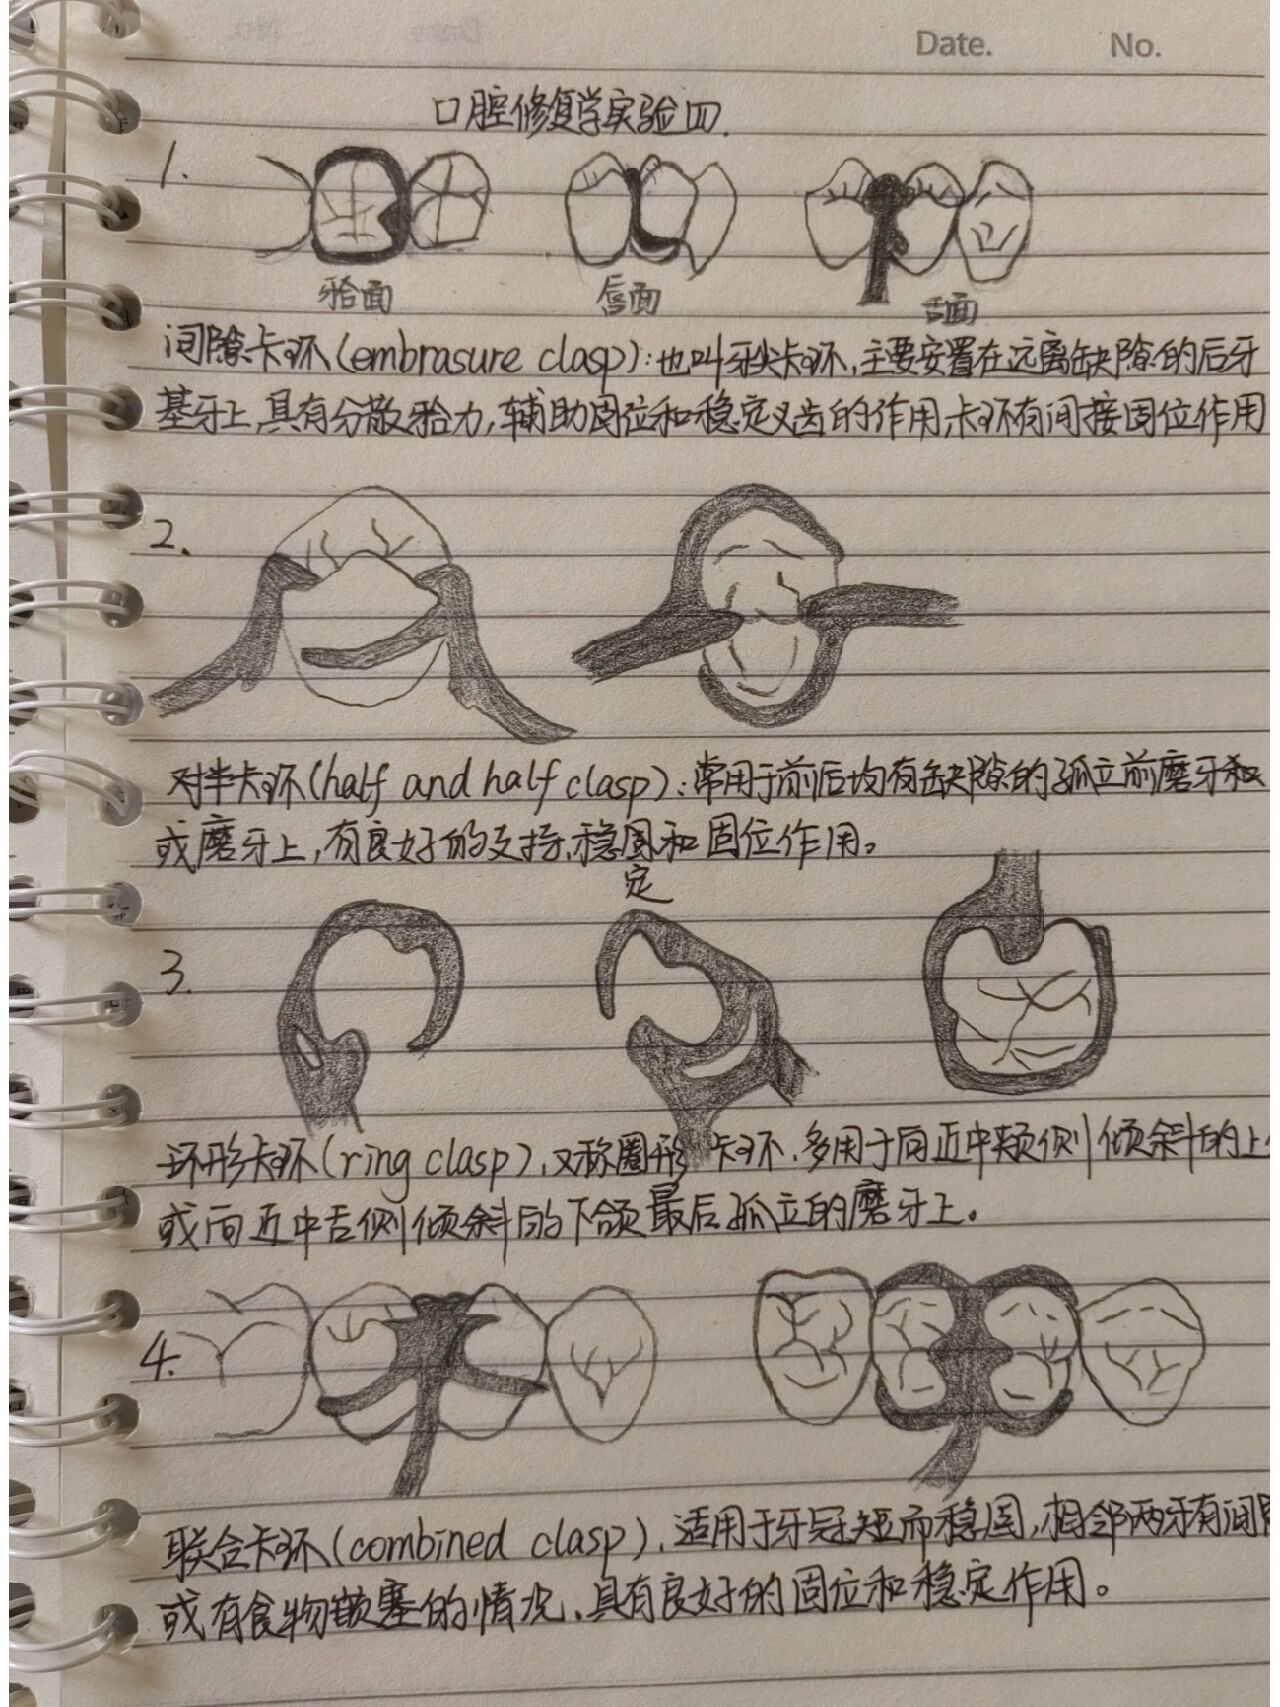 Date. No.
口腔修复学实验四.
1.
𬌗面 唇面 舌面
间隙卡环(embrasure clasp):也叫牙尖卡环,主要安置在远离缺隙的后牙
基牙上,具有分散𬌗力,辅助固位和稳定义齿的作用,卡环有间接固位作用
2.
对半卡环(half and half clasp):常用于前后均有缺隙的孤立前磨牙和
或磨牙上,有良好的支持、稳固和固位作用。
定
3.
环形卡环(ring clasp),又称圈形卡环.多用于向近中颊侧倾斜的上
或向近中舌侧倾斜的下颌最后孤立的磨牙上。
4.
联合卡环(combined clasp),适用于牙冠短而稳固,相邻两牙有间隙
或有食物嵌塞的情况、具有良好的固位和稳定作用。